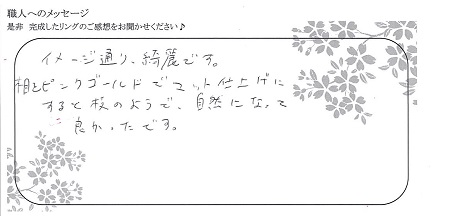 職人へのメッセージ
是非 完成したリングのご感想をお聞かせください♪
イメージ通り、綺麗です。
桜とピンクゴールドでマット仕上げに
すると枝のようで、自然になって
良かったです。